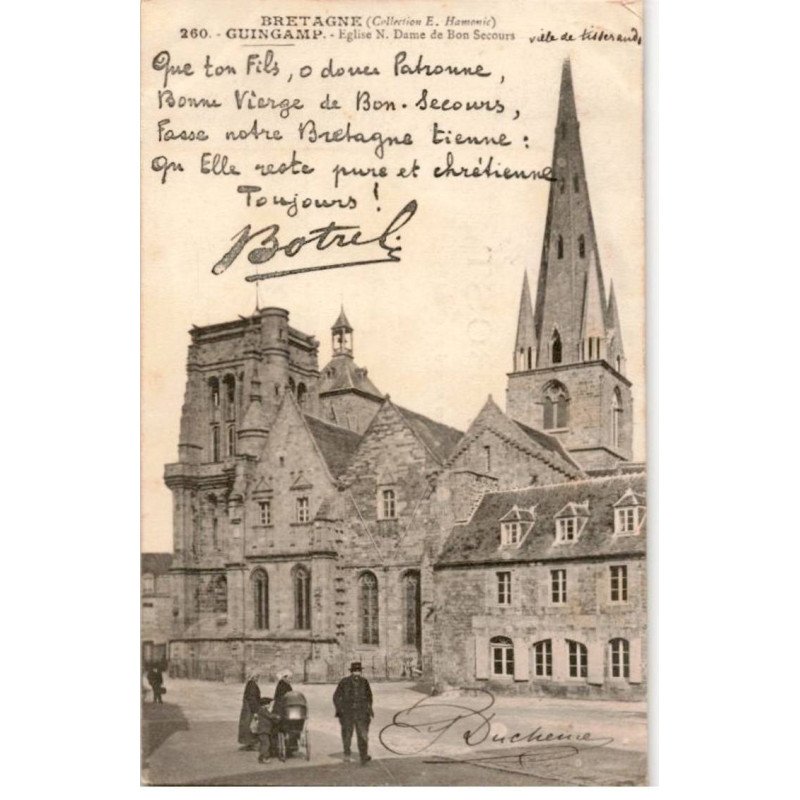 BRETAGNE (Collection E. Hamonic)
260. - GUINGAMP. - Eglise N. Dame de Bon Secours
ville de tisserands
Que ton Fils, ô douce Patronne,
Bonne Vierge de Bon-Secours,
Fasse notre Bretagne tienne :
Qu'Elle reste pure et chrétienne
Toujours !
Botrel
P Ducheme